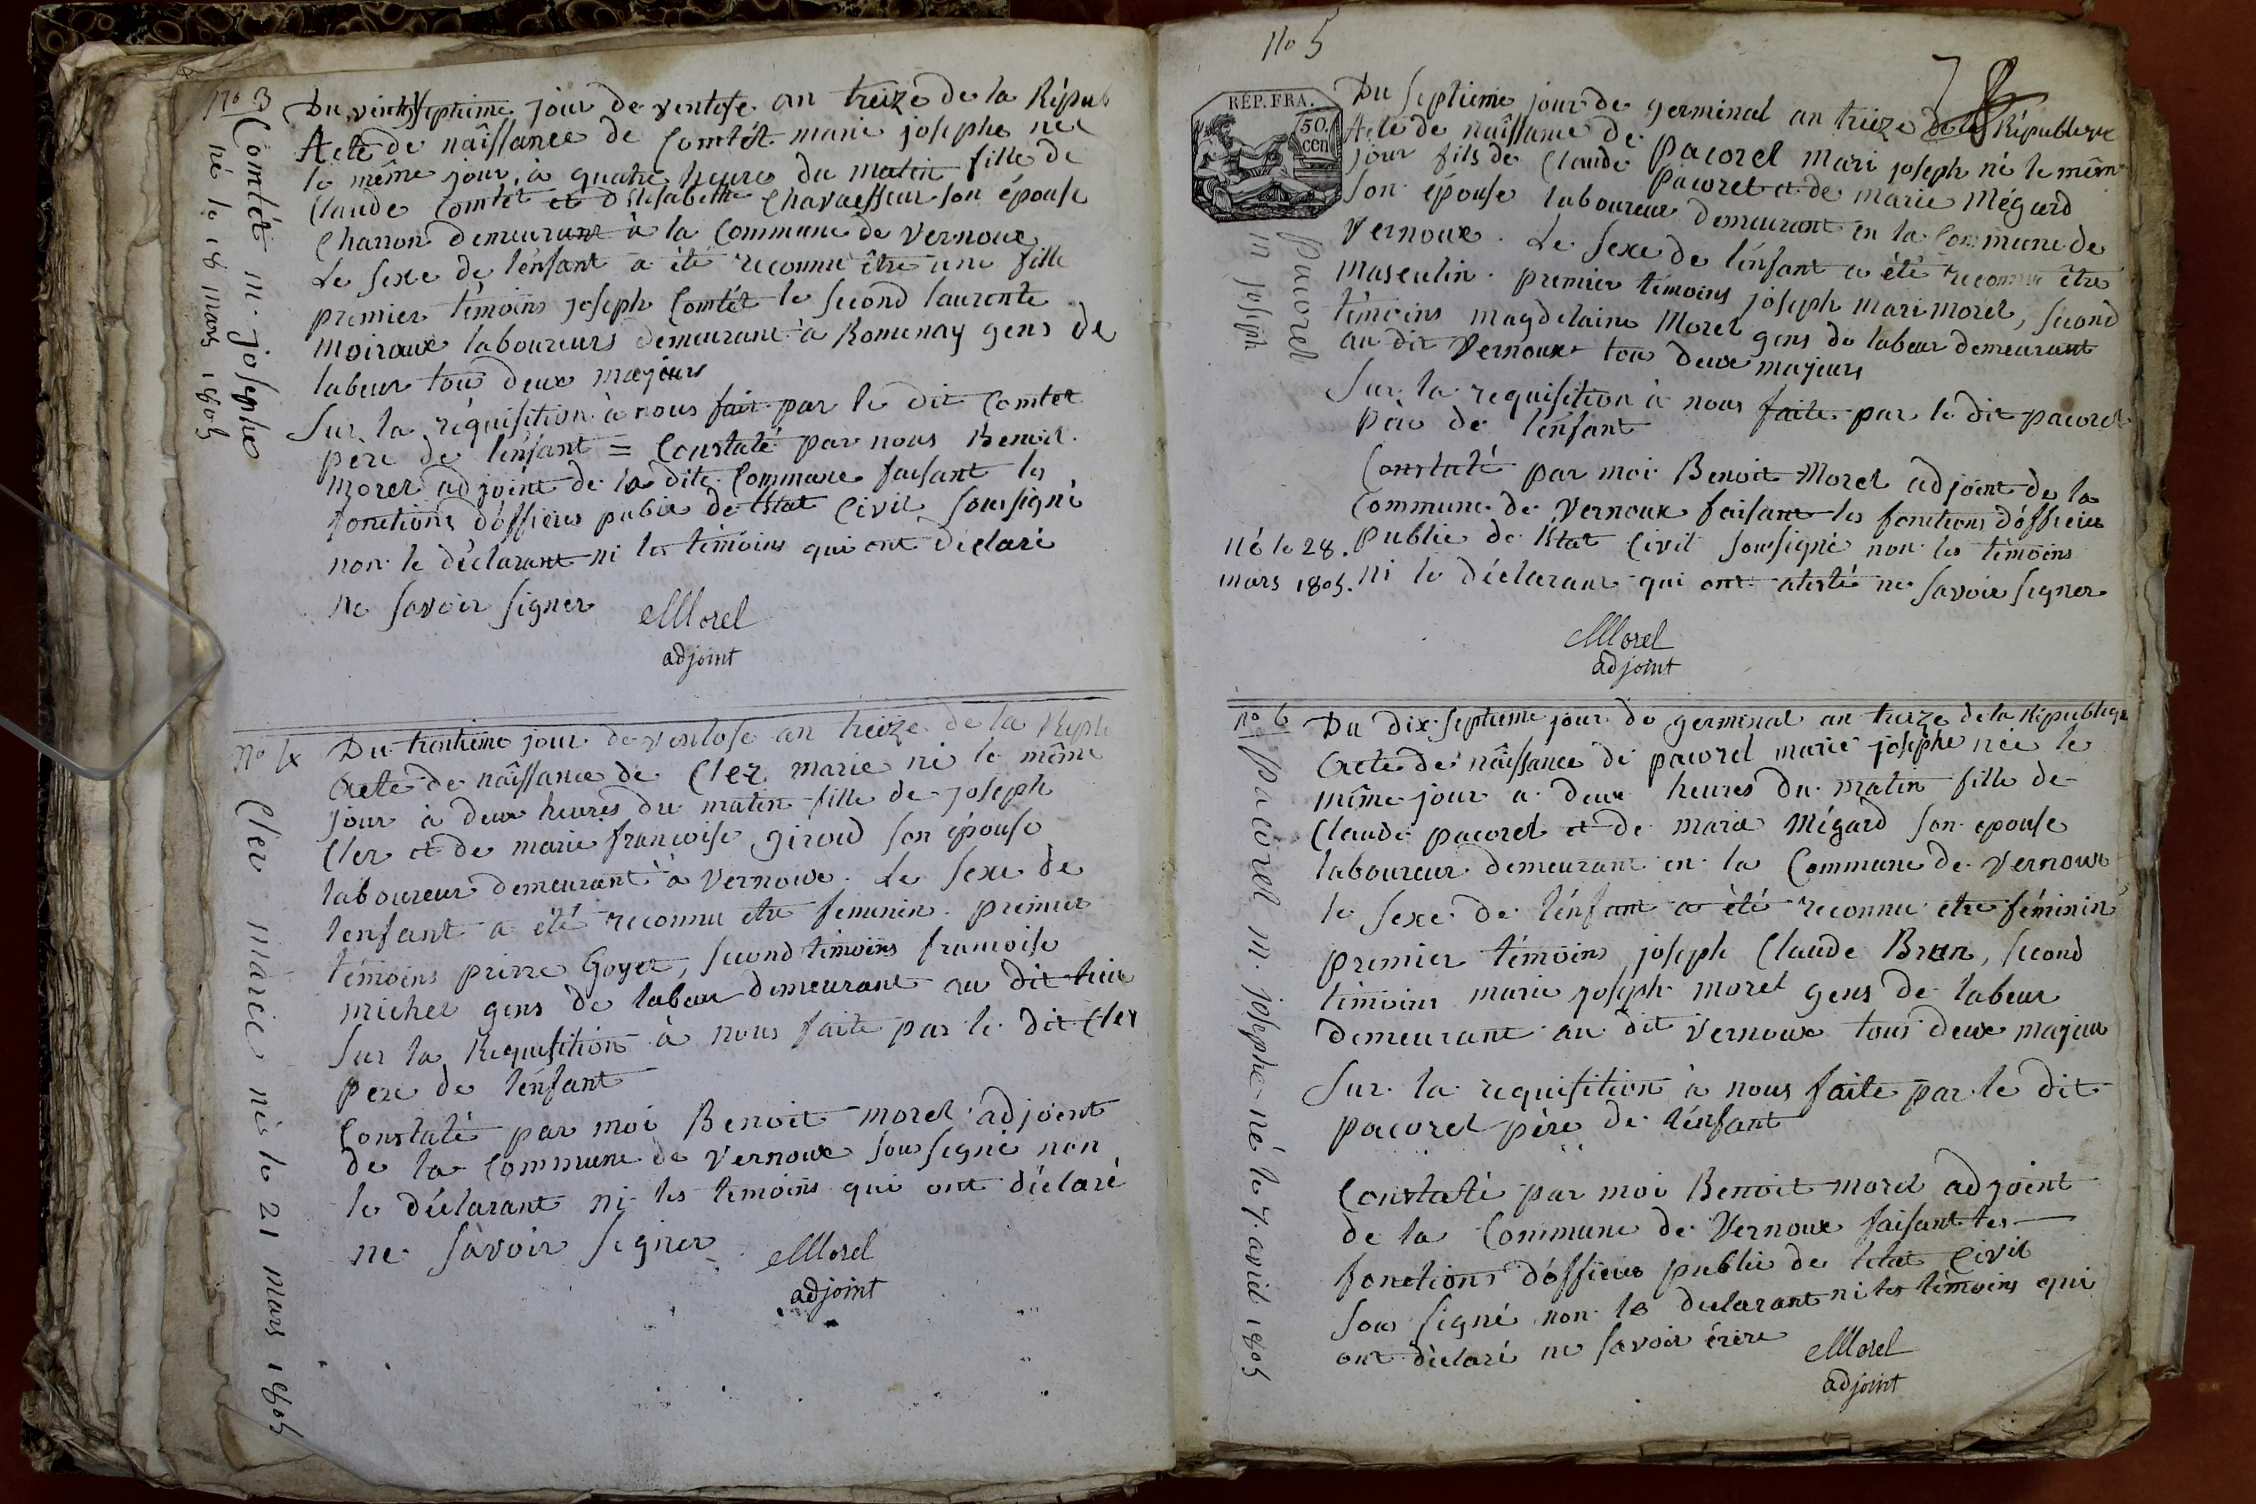 No 3
Comtét m. josephe
né le 18 mars 1805
Du vinthseptième jour de ventose an treize de la Répub
Acte de naîssance de Comtét marie josephe neé
le même jour, à quatre heures du matin fille de
Claude Comtet et d'Elisabethe Chavaesseur son épouse
Charron demeurant à la Commune de Vernoux
Le sexe de lénfant a été reconnu être une fille
premier témoins joseph Comtét le second laurente
moiroux laboureurs demeurant à Romenay gens de
labeur tou deux majeurs
Sur la réquisition à nous fait par le dit Comtet
pere de lénfant = Constaté par nous Benoit
morel adjoint de la dite Commune faisant les
fonctions dófficier public de lEtat Civil soussigné
non le déclarant ni les témoins qui ont déclaré
ne savoir signer
Morel
adjoint
No 4
Cler marie né le 21 mars 1805
Du trentième jour de ventose an treize de la Repb
Acte de naîssance de Cler marie né le même
jour à deux heures du matin fille de joseph
Cler et de marie francoise giroud son épouse
laboureur demeurant à Vernoux. Le sexe de
lenfant a été reconnu etre feminin. premier
témoins pierre Goyet, second témoins francoise
michel gens de labeur demeurant au dit lieu
Sur la Requisition à nous faite par le dit Cler
pere de lénfant
Constaté par moi Benoit morel adjoint
de la Commune de Vernoux sousigné non
le déclarant ni les témoins qui ont déclaré
ne savoir signer
Morel
adjoint
No 5
7
RÉP. FRA.
50.
cen
pacorel
m joseph
Du septieme jour de germinal an treize de la République
Acte de naîssance de pacorel mari joseph né le mêm
jour fils de Claude pacoret et de marie Mégard
son épouse laboureur demeurant en la Commune de
Vernoux. Le sexe de lénfant a été reconnu être
masculin. premier témoins joseph mari morel, second
témoins magdelaine Morel gens de labeur demeurant
au dit Vernoux tou deux majeurs
Sur la requisition à nous faite par le dit pacoret
père de lénfant
Constaté par moi Benoit Morel adjoint de la
Commune de Vernoux faisant les fonctions dófficier
public de lEtat Civil sousigné non les témoins
ni le déclarant qui ont atesté ne savoir signer
né le 28.
mars 1805.
Morel
adjoint
No 6
pacorel m. josephe né le 7 avril 1805
Du dix septieme jour de germinal an treize de la République
Acte de naîssance de pacorel marie josephe née le
même jour a deux heures du matin fille de
Claude pacorel et de marie Mégard son epouse
laboureur demeurant en la Commune de Vernoux
le sexe de lénfant a été reconnu etre féminin
premier témoins joseph Claude Brun, second
témoins marie joseph morel gens de labeur
demeurant au dit Vernoux tous deux majeur
Sur la requisition à nous faite par le dit
pacorel père de lénfant
Constaté par moi Benoit morel adjoint
de la Commune de Vernoux faisant les
fonctions dófficier public de letat Civil
sous signé non le declarant ni les témoins qui
ont déclaré ne savoir écrire
Morel
adjoint